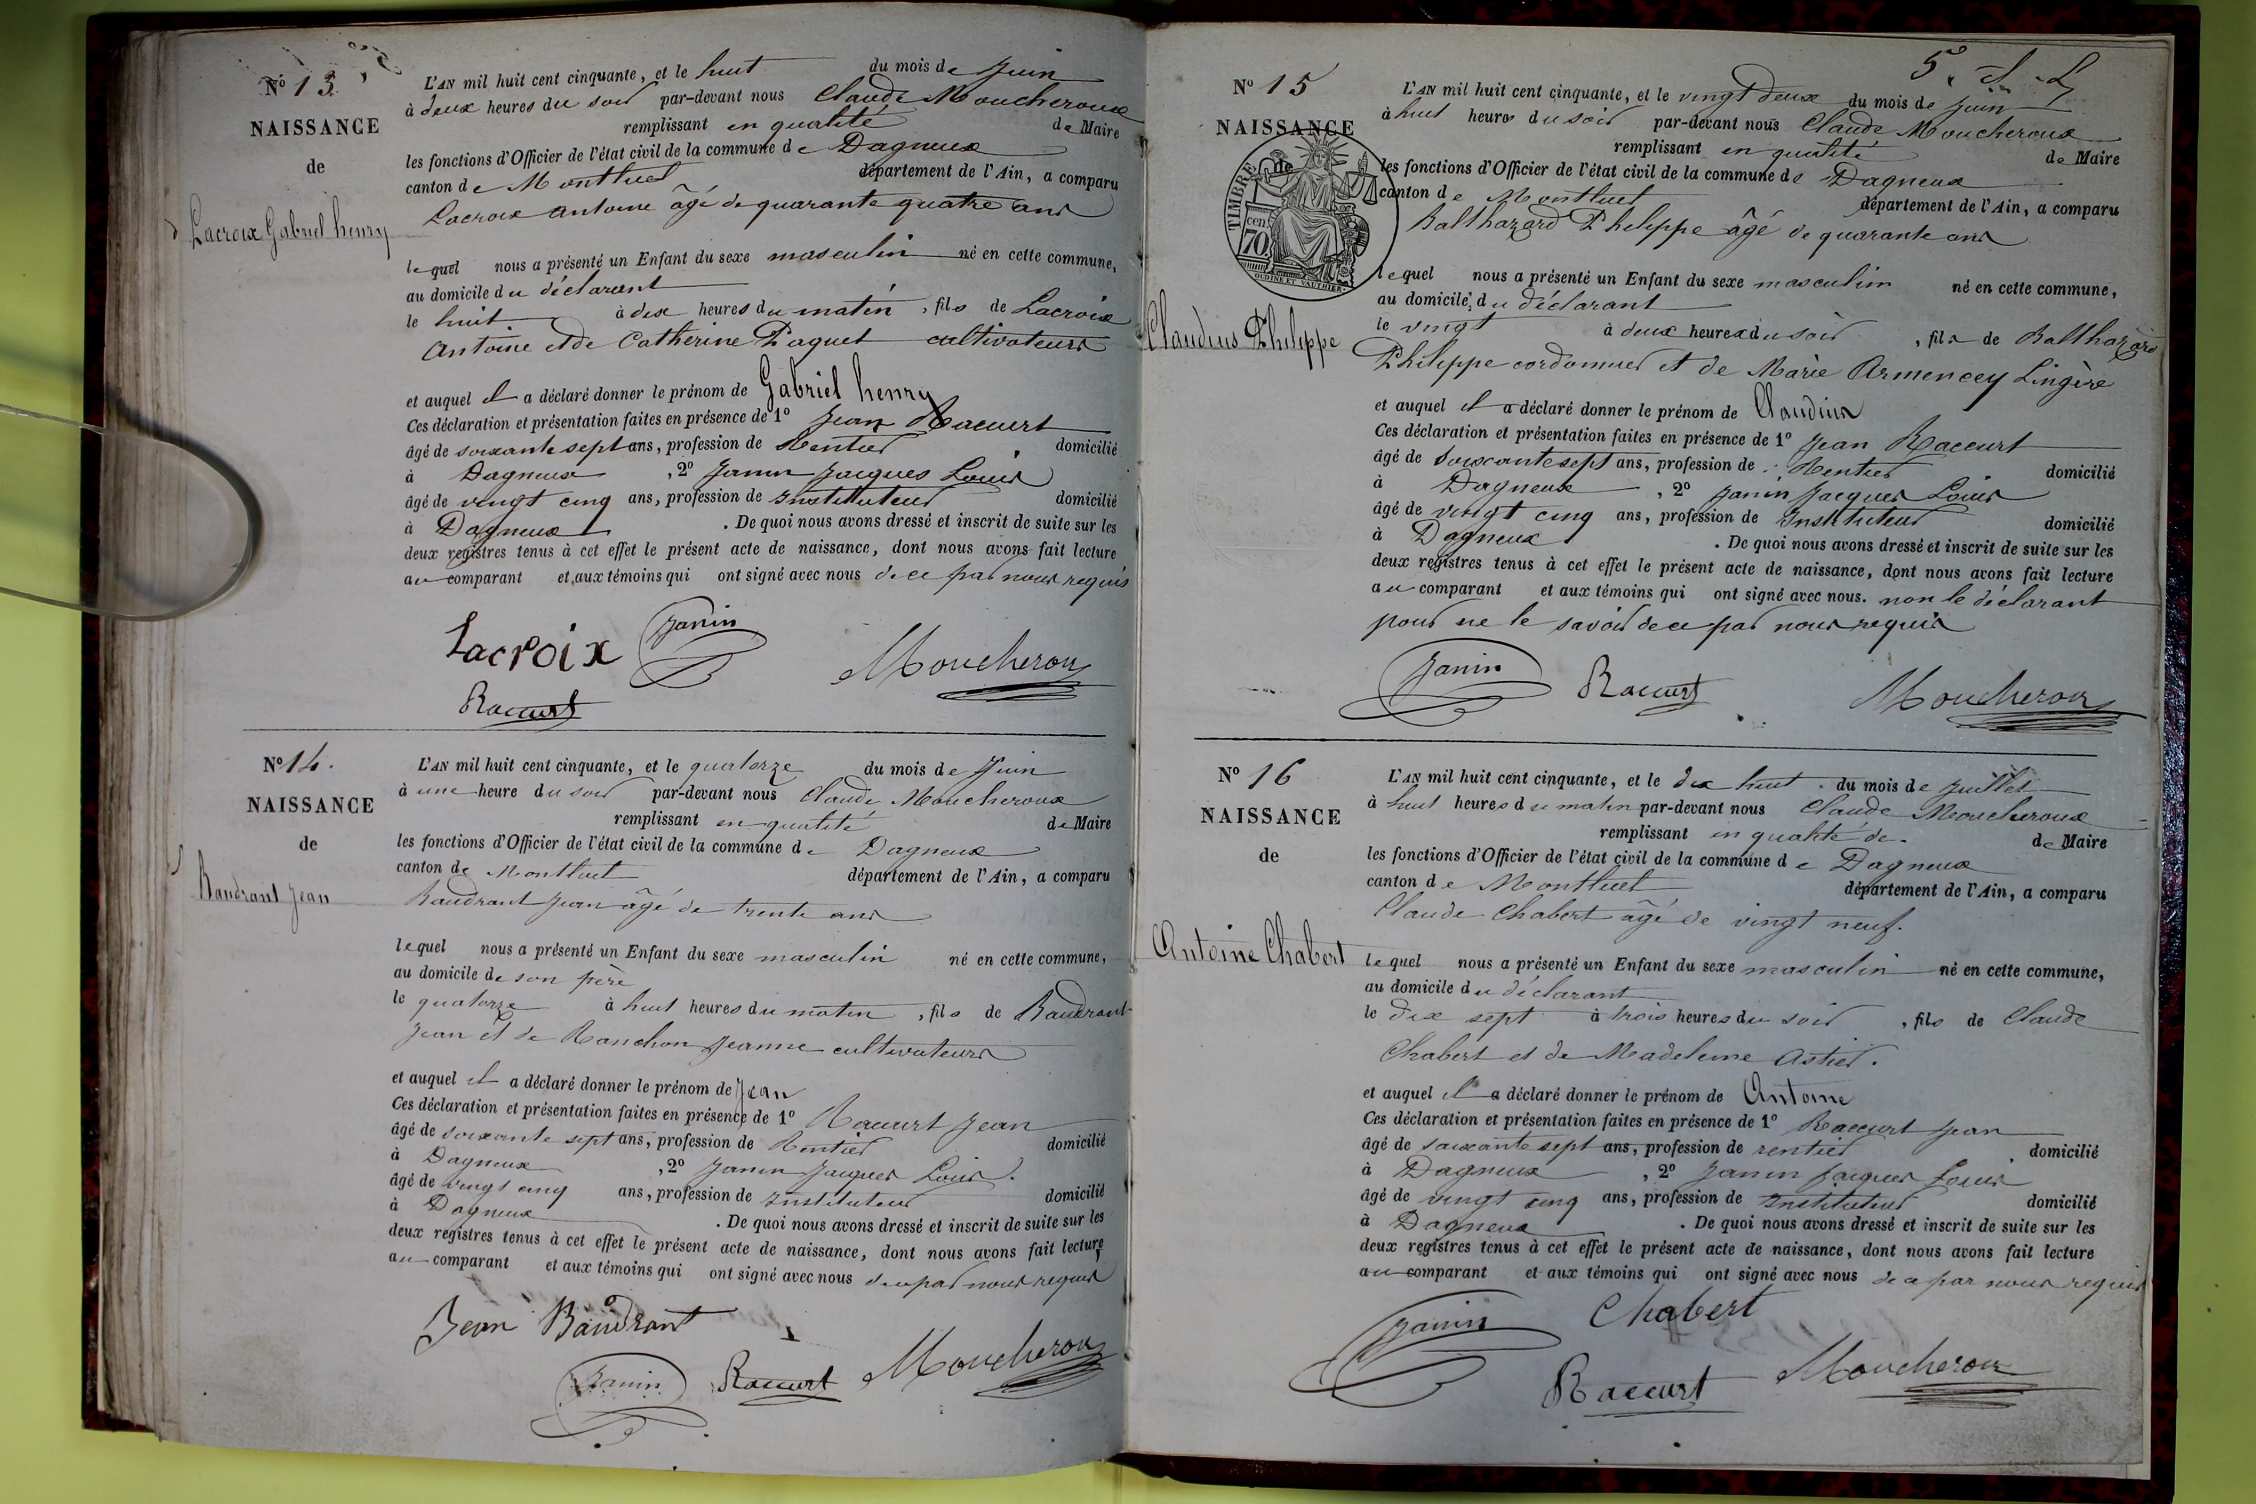 N° 13
NAISSANCE
de
Lacroix Gabriel henry
L'AN mil huit cent cinquante, et le huit du mois de Juin
à deux heures du soir par-devant nous Claude Moucheroux
remplissant en qualité de Maire
les fonctions d'Officier de l'état civil de la commune de Dagneux
canton de Montluel département de l'Ain, a comparu
Lacroix antoine âgé de quarante quatre ans
lequel nous a présenté un Enfant du sexe masculin né en cette commune,
au domicile du déclarant
le huit à dix heures du matin, fils de Lacroix
Antoine et de Catherine Paquet cultivateurs
et auquel il a déclaré donner le prénom de Gabriel henry
Ces déclaration et présentation faites en présence de 1° Jean Raccurt
âgé de soixante sept ans, profession de Rentier domicilié
à Dagneux, 2° Janin Jacques Louis
âgé de vingt cinq ans, profession de Instituteur domicilié
à Dagneux. De quoi nous avons dressé et inscrit de suite sur les
deux registres tenus à cet effet le présent acte de naissance, dont nous avons fait lecture
au comparant et aux témoins qui ont signé avec nous de ce par nous requis
Lacroix Janin Moucheroux
Raccurt
N° 14.
NAISSANCE
de
Baudrant Jean
L'AN mil huit cent cinquante, et le quatorze du mois de Juin
à une heure du soir par-devant nous Claude Moucheroux
remplissant en qualité de Maire
les fonctions d'Officier de l'état civil de la commune de Dagneux
canton de Montluel département de l'Ain, a comparu
Baudrant Jean âgé de trente ans
lequel nous a présenté un Enfant du sexe masculin né en cette commune,
au domicile de son père
le quatorze à huit heures du matin, fils de Baudrant
Jean et de Ranchon Jeanne cultivateurs
et auquel il a déclaré donner le prénom de Jean
Ces déclaration et présentation faites en présence de 1° Raccurt Jean
âgé de soixante sept ans, profession de Rentier domicilié
à Dagneux, 2° Janin Jacques Louis.
âgé de vingt cinq ans, profession de Instituteur domicilié
à Dagneux. De quoi nous avons dressé et inscrit de suite sur les
deux registres tenus à cet effet le présent acte de naissance, dont nous avons fait lecture
au comparant et aux témoins qui ont signé avec nous de ce par nous requis
Jean Baudrant
Janin Raccurt Moucheroux
N° 15
NAISSANCE
de
TIMBRE
cen
70
OUDINÉ ET VAUTHIER
Claudius Philippe
L'AN mil huit cent cinquante, et le vingt deux du mois de Juin
à huit heures du soir par-devant nous Claude Moucheroux
remplissant en qualité de Maire
les fonctions d'Officier de l'état civil de la commune de Dagneux
canton de Montluel département de l'Ain, a comparu
Balthazard Philippe âgé de quarante ans
lequel nous a présenté un Enfant du sexe masculin né en cette commune,
au domicile du déclarant
le vingt à deux heures du soir, fils de Balthazard
Philippe cordonnier et de Marie Armencey Lingère
et auquel il a déclaré donner le prénom de Claudius
Ces déclaration et présentation faites en présence de 1° Jean Raccurt
âgé de soixante sept ans, profession de Rentier domicilié
à Dagneux, 2° Janin Jacques Louis
âgé de vingt cinq ans, profession de Instituteur domicilié
à Dagneux. De quoi nous avons dressé et inscrit de suite sur les
deux registres tenus à cet effet le présent acte de naissance, dont nous avons fait lecture
au comparant et aux témoins qui ont signé avec nous. non le déclarant
pour ne le savoir de ce par nous requis
Janin Raccurt Moucheroux
N° 16
NAISSANCE
de
Antoine Chabert
L'AN mil huit cent cinquante, et le dix huit du mois de Juillet
à huit heures du matin par-devant nous Claude Moucheroux
remplissant en qualité de. de Maire
les fonctions d'Officier de l'état civil de la commune de Dagneux
canton de Montluel département de l'Ain, a comparu
Claude Chabert âgé de vingt neuf.
lequel nous a présenté un Enfant du sexe masculin né en cette commune,
au domicile du déclarant
le dix sept à trois heures du soir, fils de Claude
Chabert et de Madeleine Astier.
et auquel il a déclaré donner le prénom de Antoine
Ces déclaration et présentation faites en présence de 1° Raccurt Jean
âgé de soixante sept ans, profession de rentier domicilié
à Dagneux, 2° Janin Jacques Louis
âgé de vingt cinq ans, profession de Instituteur domicilié
à Dagneux. De quoi nous avons dressé et inscrit de suite sur les
deux registres tenus à cet effet le présent acte de naissance, dont nous avons fait lecture
au comparant et aux témoins qui ont signé avec nous de ce par nous requis
Janin Chabert
Raccurt Moucheroux